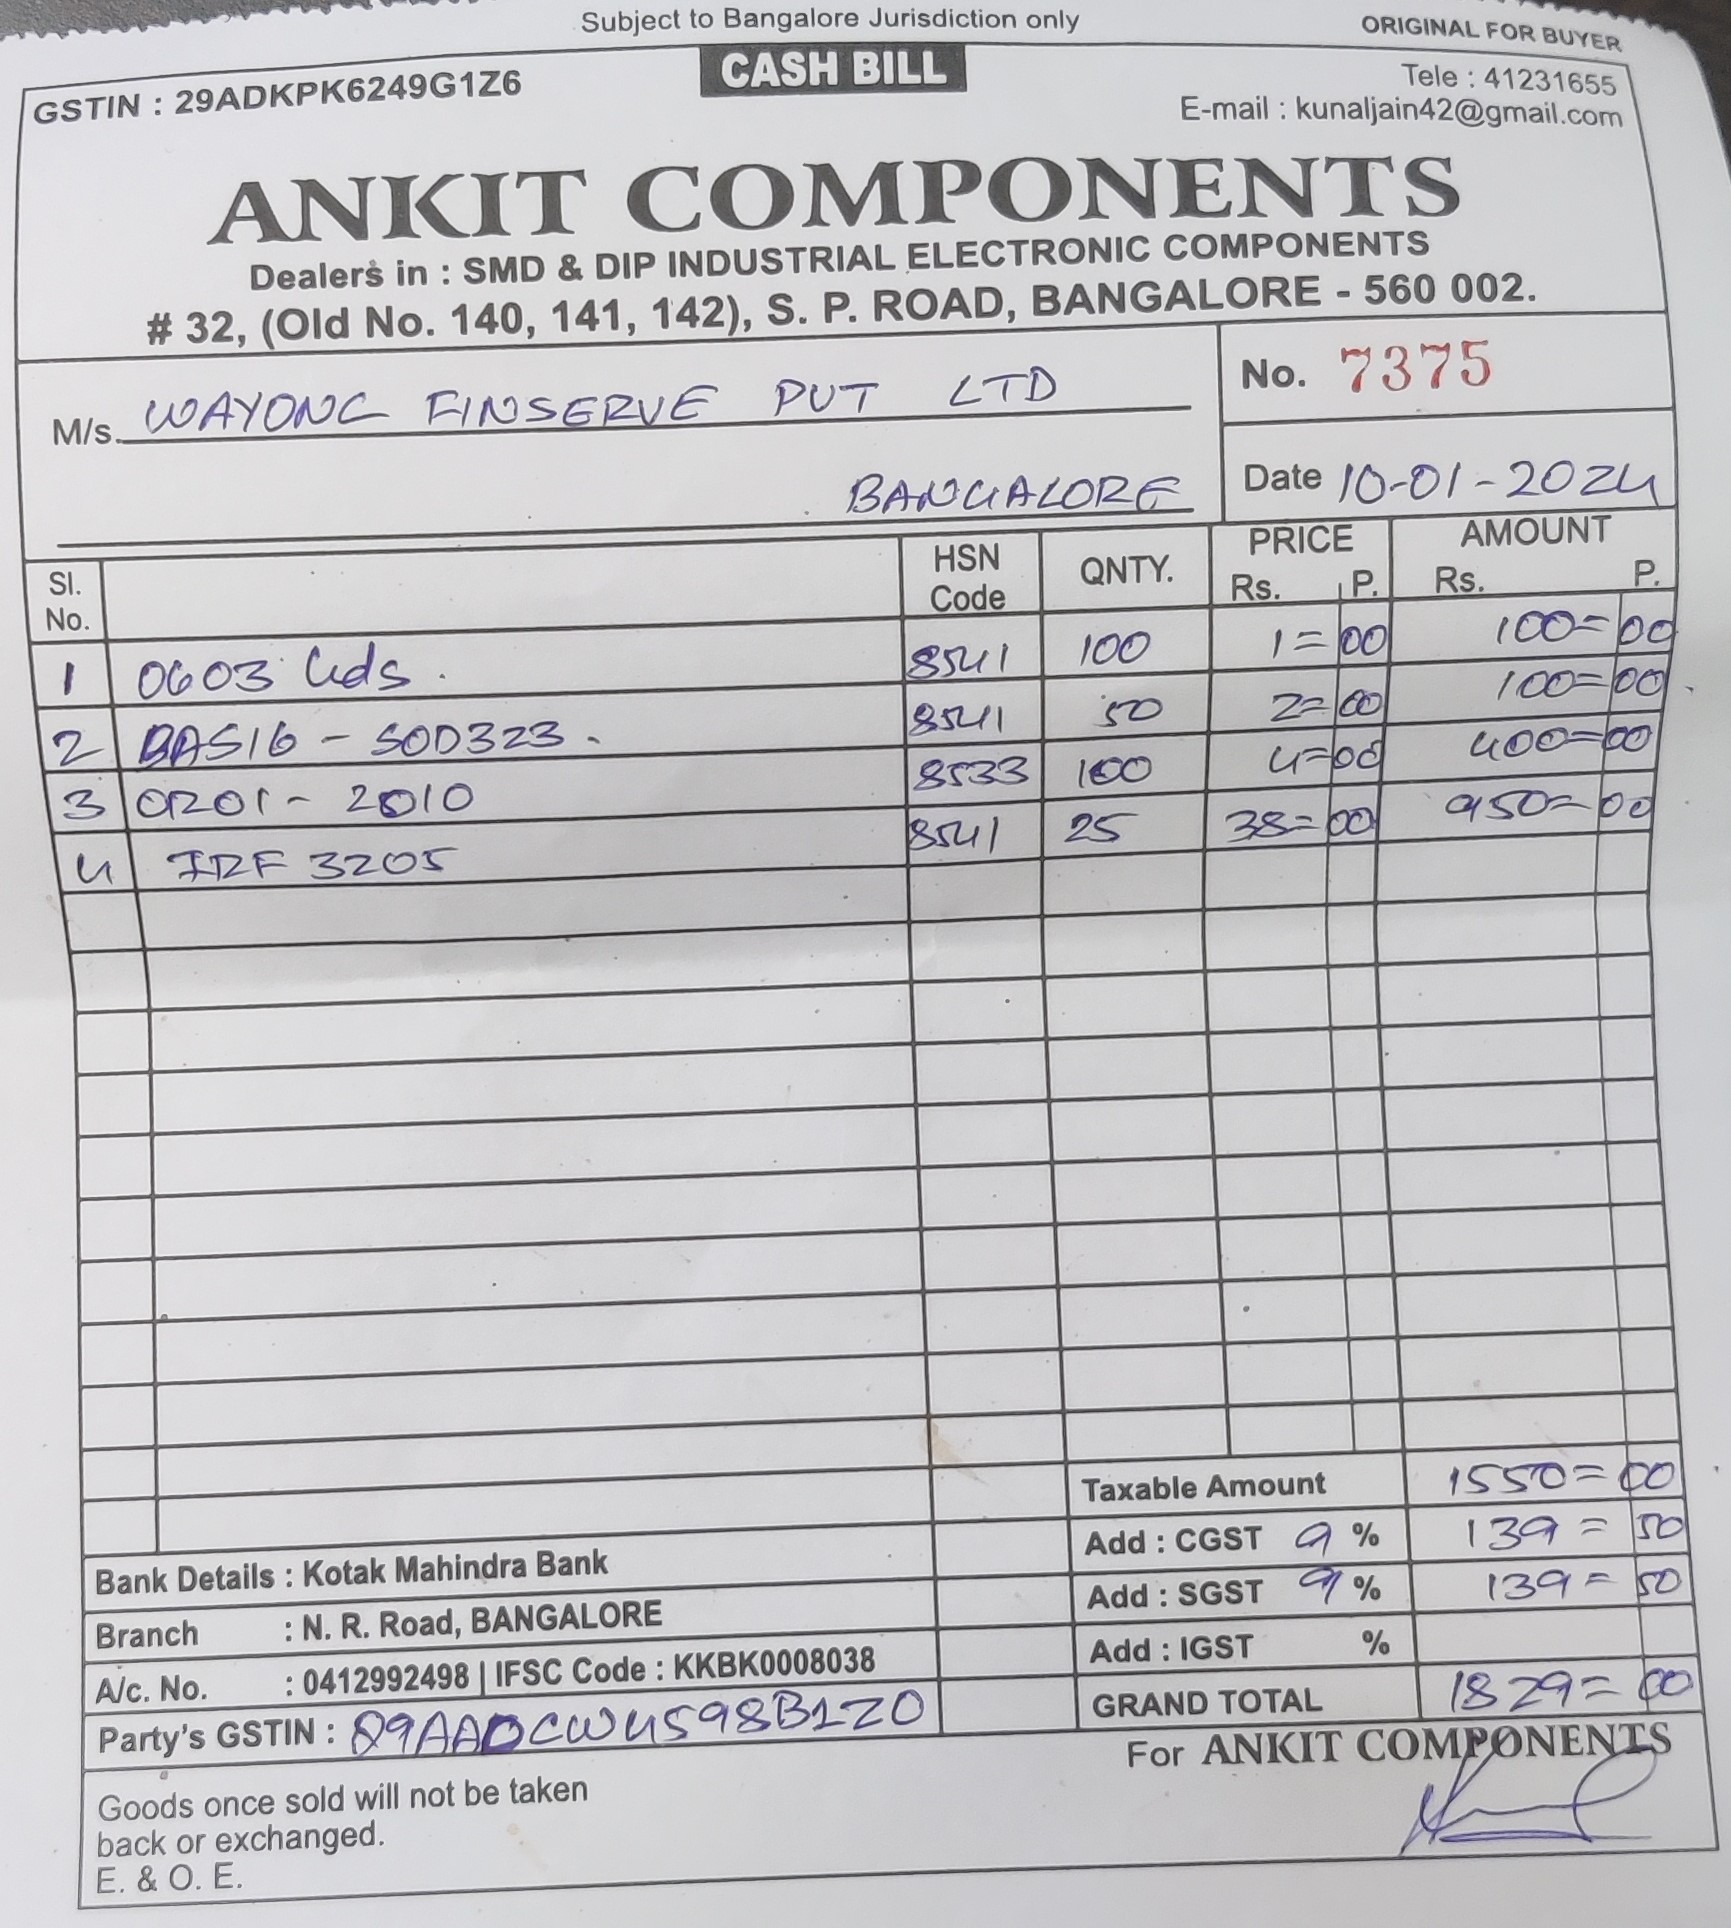 Subject to Bangalore Jurisdiction only
ORIGINAL FOR BUYER
GSTIN : 29ADKPK6249G1Z6
CASH BILL
Tele : 41231655
E-mail : kunaljain42@gmail.com
ANKIT COMPONENTS
Dealers in : SMD & DIP INDUSTRIAL ELECTRONIC COMPONENTS
# 32, (Old No. 140, 141, 142), S. P. ROAD, BANGALORE - 560 002.
M/s. WAYONC FINSERVE PVT LTD
No. 7375
BANGALORE
Date 10-01-2024
Sl. No. HSN Code QNTY. PRICE Rs. P. AMOUNT Rs. P.
1 0603 leds. 8541 100 1=00 100=00
2 BAS16 - SOD323. 8541 50 2=00 100=00
3 0R01 - 2010 8533 100 4=00 400=00
4 IRF 3205 8541 25 38=00 950=00
Taxable Amount 1550=00
Add : CGST 9 % 139=50
Add : SGST 9 % 139=50
Add : IGST %
GRAND TOTAL 1829=00
Bank Details : Kotak Mahindra Bank
Branch : N. R. Road, BANGALORE
A/c. No. : 0412992498 | IFSC Code : KKBK0008038
Party's GSTIN : 29AADCW4598B1Z0
For ANKIT COMPONENTS
Goods once sold will not be taken
back or exchanged.
E. & O. E.